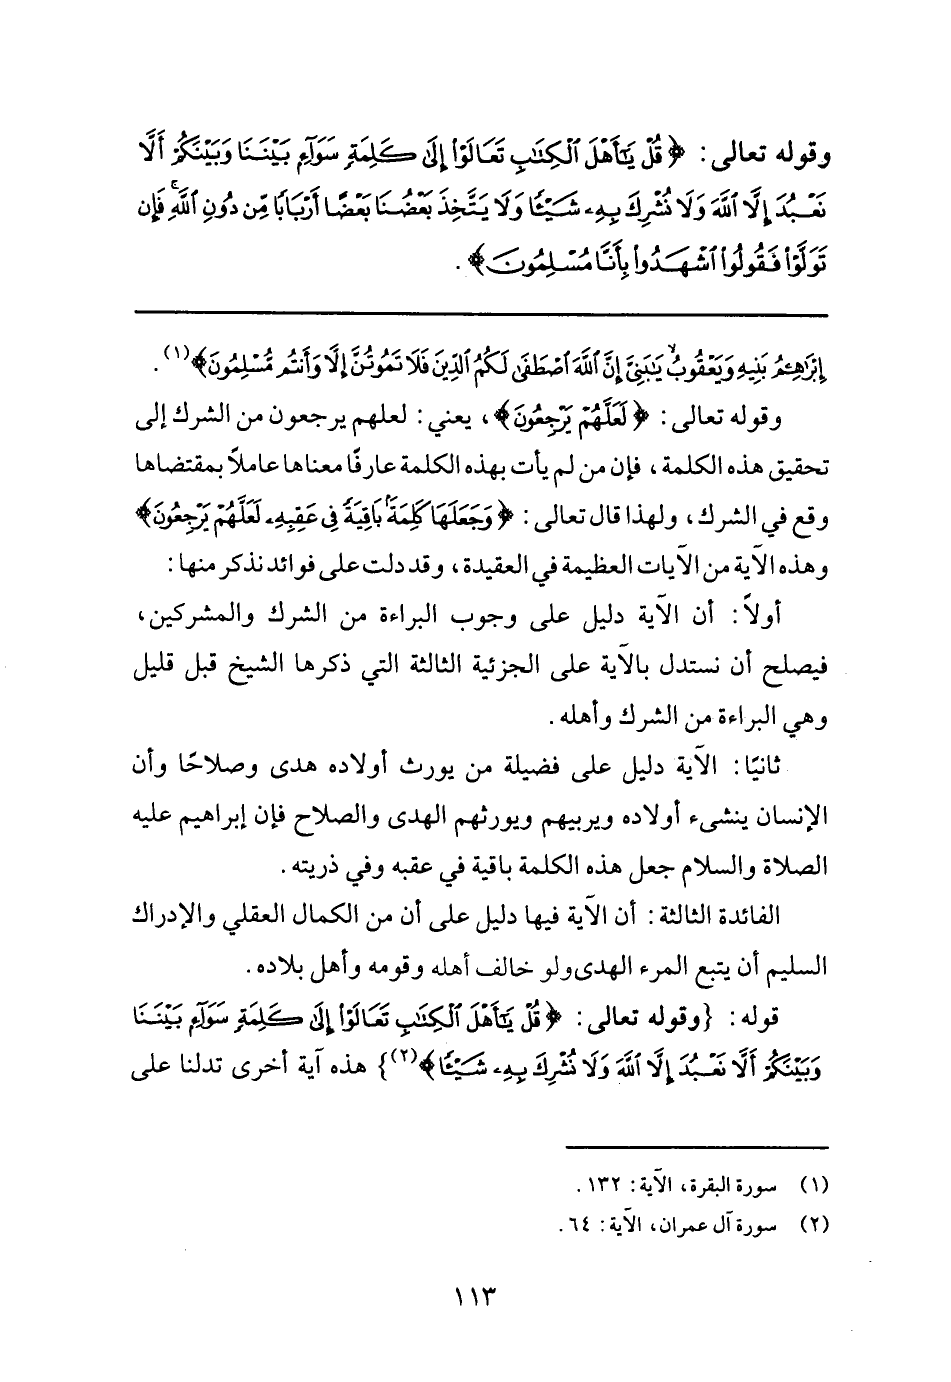 وقوله تعالى: ﴿قُلْ يَٰٓأَهْلَ ٱلْكِتَٰبِ تَعَالَوْا۟ إِلَىٰ كَلِمَةٍ سَوَآءٍۭ بَيْنَنَا وَبَيْنَكُمْ أَلَّا
نَعْبُدَ إِلَّا ٱللَّهَ وَلَا نُشْرِكَ بِهِۦ شَيْـًٔا وَلَا يَتَّخِذَ بَعْضُنَا بَعْضًا أَرْبَابًا مِّن دُونِ ٱللَّهِ ۚ فَإِن
تَوَلَّوْا۟ فَقُولُوا۟ ٱشْهَدُوا۟ بِأَنَّا مُسْلِمُونَ﴾.
إِبْرَٰهِـۧمُ بَنِيهِ وَيَعْقُوبُ يَٰبَنِىَّ إِنَّ ٱللَّهَ ٱصْطَفَىٰ لَكُمُ ٱلدِّينَ فَلَا تَمُوتُنَّ إِلَّا وَأَنتُم مُّسْلِمُونَ﴾(١).
وقوله تعالى: ﴿لَعَلَّهُمْ يَرْجِعُونَ﴾، يعني: لعلهم يرجعون من الشرك إلى
تحقيق هذه الكلمة، فإن من لم يأت بهذه الكلمة عارفًا معناها عاملاً بمقتضاها
وقع في الشرك، ولهذا قال تعالى: ﴿وَجَعَلَهَا كَلِمَةًۢ بَاقِيَةً فِى عَقِبِهِۦ لَعَلَّهُمْ يَرْجِعُونَ﴾
وهذه الآية من الآيات العظيمة في العقيدة، وقد دلت على فوائد نذكر منها:
أولاً: أن الآية دليل على وجوب البراءة من الشرك والمشركين،
فيصلح أن نستدل بالآية على الجزئية الثالثة التي ذكرها الشيخ قبل قليل
وهي البراءة من الشرك وأهله.
ثانيًا: الآية دليل على فضيلة من يورث أولاده هدى وصلاحًا وأن
الإنسان ينشىء أولاده ويربيهم ويورثهم الهدى والصلاح فإن إبراهيم عليه
الصلاة والسلام جعل هذه الكلمة باقية في عقبه وفي ذريته.
الفائدة الثالثة: أن الآية فيها دليل على أن من الكمال العقلي والإدراك
السليم أن يتبع المرء الهدى ولو خالف أهله وقومه وأهل بلاده.
قوله: {وقوله تعالى: ﴿قُلْ يَٰٓأَهْلَ ٱلْكِتَٰبِ تَعَالَوْا۟ إِلَىٰ كَلِمَةٍ سَوَآءٍۭ بَيْنَنَا
وَبَيْنَكُمْ أَلَّا نَعْبُدَ إِلَّا ٱللَّهَ وَلَا نُشْرِكَ بِهِۦ شَيْـًٔا﴾(٢)} هذه آية أخرى تدلنا على
(١) سورة البقرة، الآية: ١٣٢.
(٢) سورة آل عمران، الآية: ٦٤.
١١٣